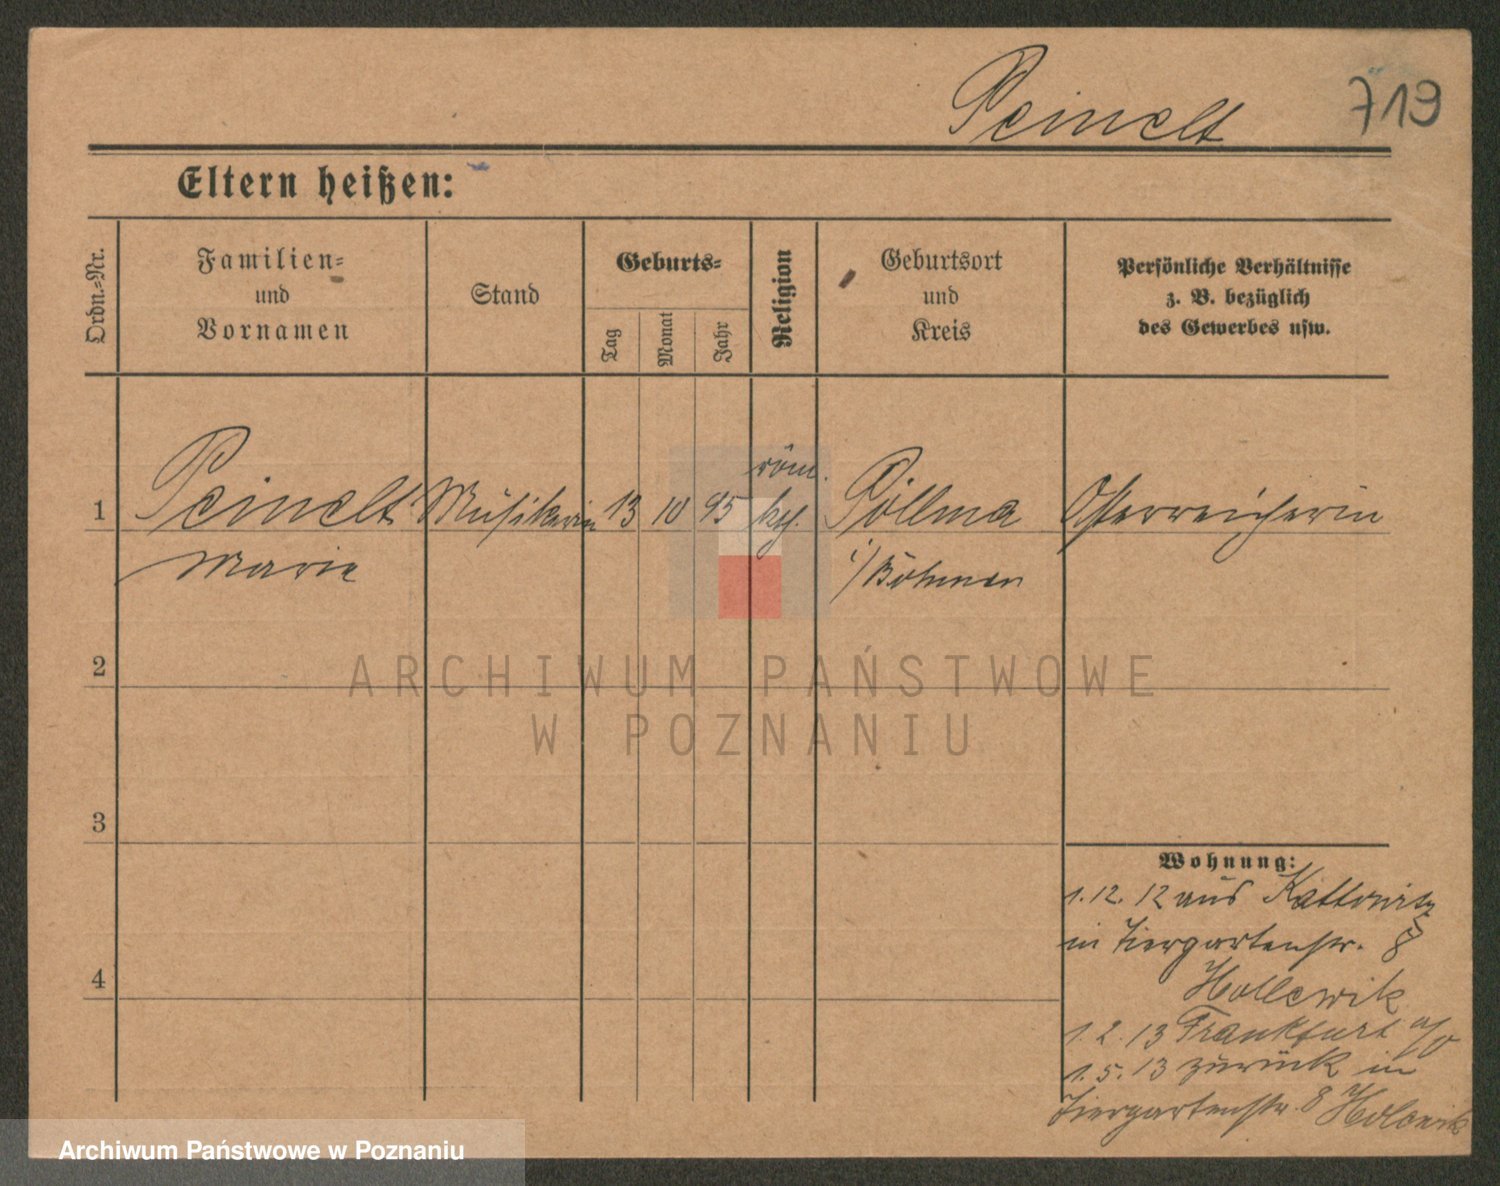 Peinelt 719
Eltern heißen:
Ordn.-Nr.
Familien-
und
Vornamen
Stand
Geburts-
Tag
Monat
Jahr
Religion
Geburtsort
und
Kreis
Persönliche Verhältnisse
z. B. bezüglich
des Gewerbes usw.
1 Peinelt Musikerin 13 10 95 röm. kth. Pöllma Österreicherin
Marie i/Böhmen
2
3
4
Wohnung:
1. 12. 12 aus Kattowitz
in Tiergartenstr. 8
Hollewik
1. 2. 13 Frankfurt a/O
1. 5. 13 zurück in
Tiergartenstr. 8 Holewik
ARCHIWUM PAŃSTWOWE
W POZNANIU
Archiwum Państwowe w Poznaniu